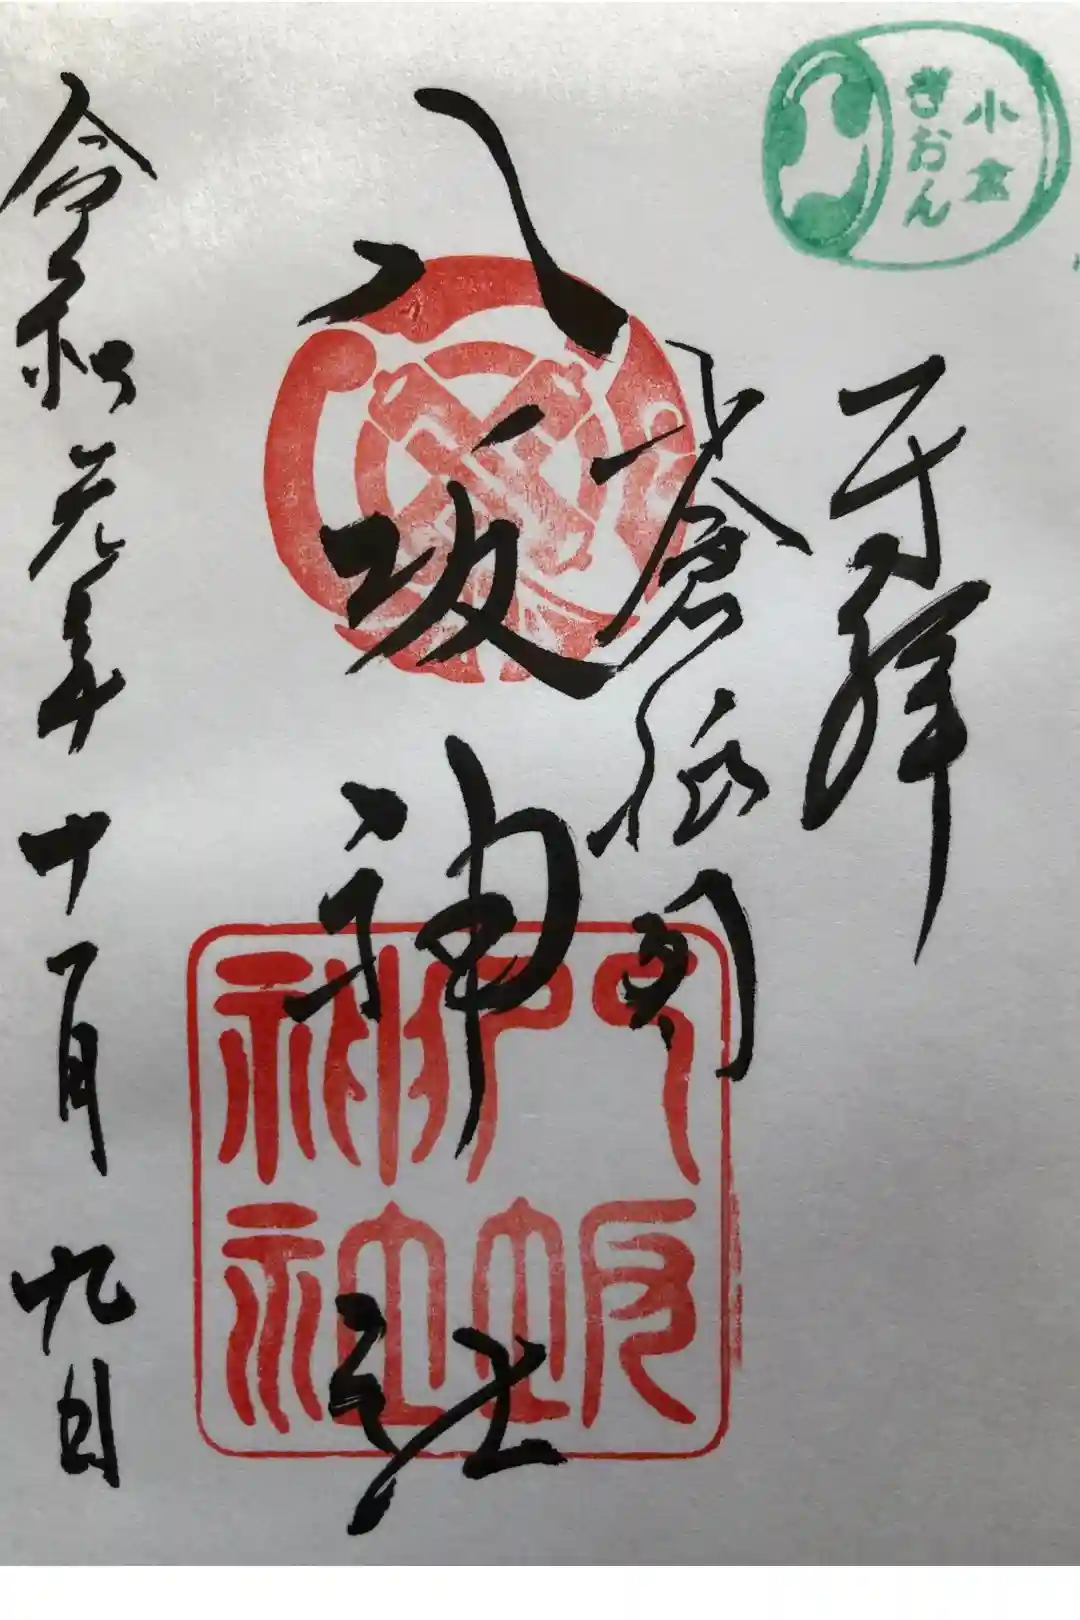 小倉
ぎおん
奉拝
小倉祇園
八坂神社
八坂
神社
令和元年十月九日